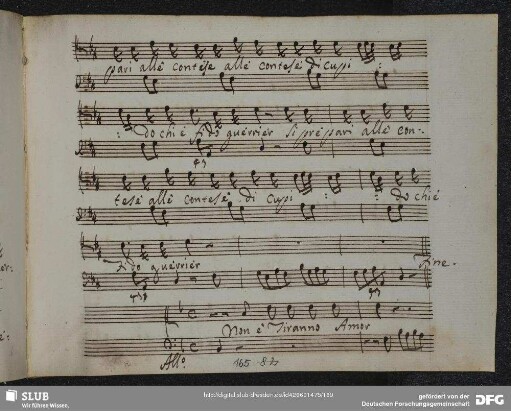 pari alle contese alle contese di cupi :
: do chi è fido guerrier si prepari alle con-
tese alle contese di cupi : : do chi è
fido guerrier
Fine.
Non è Tiranno Amor
All.º
165
SLUB
Wir führen Wissen.
gefördert von der
Deutschen Forschungsgemeinschaft
DFG